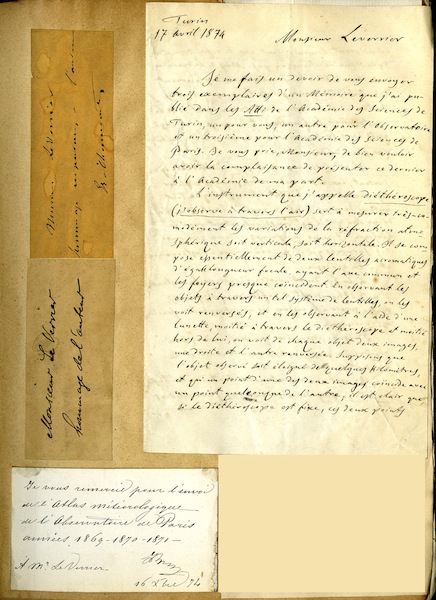 Turin
17 avril 1874
Monsieur Leverrier
Je me fais un devoir de vous envoyer
trois exemplaires d'un Mémoire que j'ai pu-
blié dans les Atti de l'Académie des Sciences de
Turin, un pour vous, un autre pour l'Observatoire
et un troisième pour l'Académie des Sciences de
Paris. Je vous prie, Monsieur, de bien vouloir
avoir la complaisance de présenter ce dernier
à l'Académie de ma part.
L'instrument que j'appelle diéthéroscope
(j'observe à travers l'air) sert à mesurer très-co-
modément les variations de la réfraction atmo-
sphérique soit verticale, soit horizontale. Il se com-
pose essentiellement de deux lentilles acromatiques
d'égale longueur focale, ayant l'axe commun et
les foyers presque coïncidents. En observant les
objets à travers un tel système de lentilles, on les
voit renversés, et en les observant à l'aide d'une
lunette, moitié à travers le diéthéroscope et moitié
hors de lui, on voit de chaque objet deux images,
une droite et l'autre renversée. Supposons que
l'objet observé soit éloigné de quelques kilomètres,
et qu'un point d'une des deux images coïncide avec
un point quelconque de l'autre, il est clair que
si le diéthéroscope est fixe, ces deux points
Monsieur LeVerrier
hommage
Monsieur Le Verrier
hommage de l'auteur
Je vous remercie pour l'envoi
de l'Atlas météorologique
de l'Observatoire de Paris
années 1869-1870-1871-
À Mr Le Verrier
16 Xbre 74